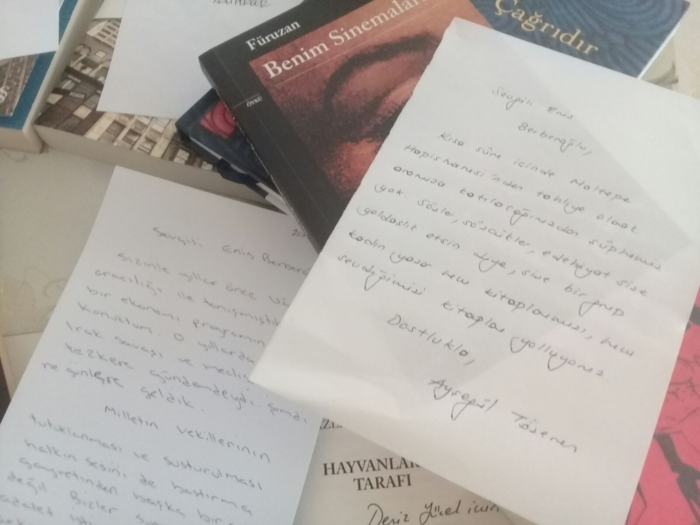 Füruzan
Benim Sinemalar
öykü
Çağrıdır
Sevgili Enis
Berberoğlu,
Kısa süre içinde Maltepe
Hapishanesi'nden tahliye olarak
aramıza katılacağınızdan şüphemiz
yok. Sözle, sözcükler, edebiyat size
yoldaşlık etsin diye, size bir grup
kadın yazar hem kitaplarımızı, hem
sevdiğimiz kitapları yolluyoruz.
Dostlukla,
Ayşegül
Sevgili Enis Berbero
Sizinle yıllar önce
aracılığı ile tanışmıştık
bir ekonomi programın
konuktum. O yıllarda
Irak savaşı ve meclis
tezkere gündemdeydi. Şimdi
ne günlere geldik.
Milletin vekillerinin
tutuklanması ve susturulması
halkın sesini de bastırma
gayretinden başka bir
değil. Bizler
adalet
HAYVANLAR
TARAFI
Deniz Yücel için